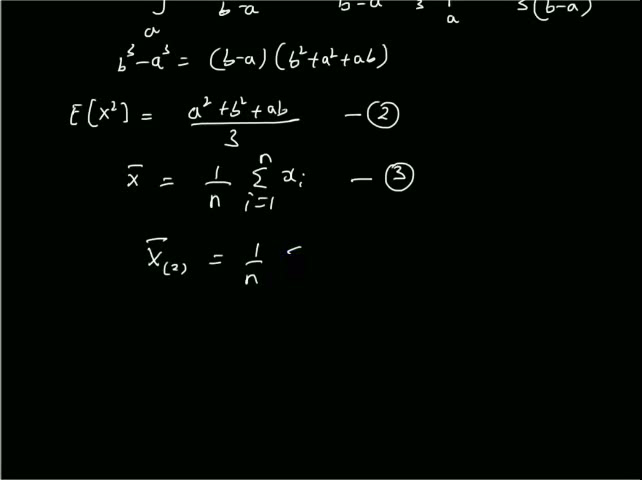 ∫ₐ b-a b-a 3 |ₐ 3(b-a)
b³-a³ = (b-a)(b²+a²+ab)
E[x²] = (a²+b²+ab)/3 — ②
x̄ = 1/n Σ_{i=1}^{n} xᵢ — ③
X̄₍₂₎ = 1/n